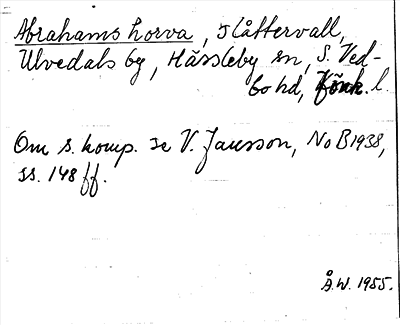 Abrahams horva, slåttervall,
Ulvedals by, Hässleby sn, S. Ved-
bo hd, Jönk. l.
Om s. komp. se V. Jansson, NoB 1938,
ss. 148 ff.
Å.W. 1955.